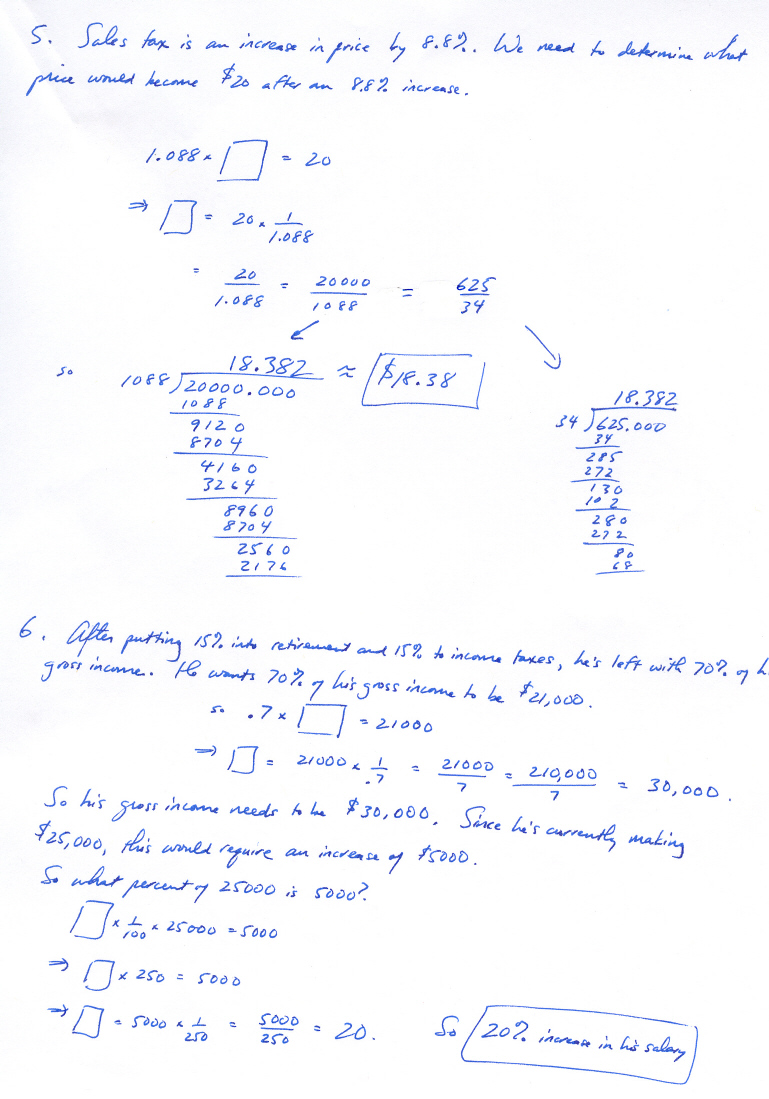 5. Sales tax is an increase in price by 8.8%. We need to determine what
price would become $20 after an 8.8% increase.
1.088 × □ = 20
⇒ □ = 20 × 1/1.088
= 20/1.088 = 20000/1088 = 625/34
so
18.382 ≈ $18.38
1088 ) 20000.000
1088
9120
8704
4160
3264
8960
8704
2560
2176
18.382
34 ) 625.000
34
285
272
130
102
280
272
80
68
6. After putting 15% into retirement and 15% to income taxes, he's left with 70% of h
gross income. He wants 70% of his gross income to be $21,000.
so .7 × □ = 21000
⇒ □ = 21000 × 1/.7 = 21000/7 = 210,000/7 = 30,000.
So his gross income needs to be $30,000. Since he's currently making
$25,000, this would require an increase of $5000.
So what percent of 25000 is 5000?
□ × 1/100 × 25000 = 5000
⇒ □ × 250 = 5000
⇒ □ = 5000 × 1/250 = 5000/250 = 20. So 20% increase in his salary